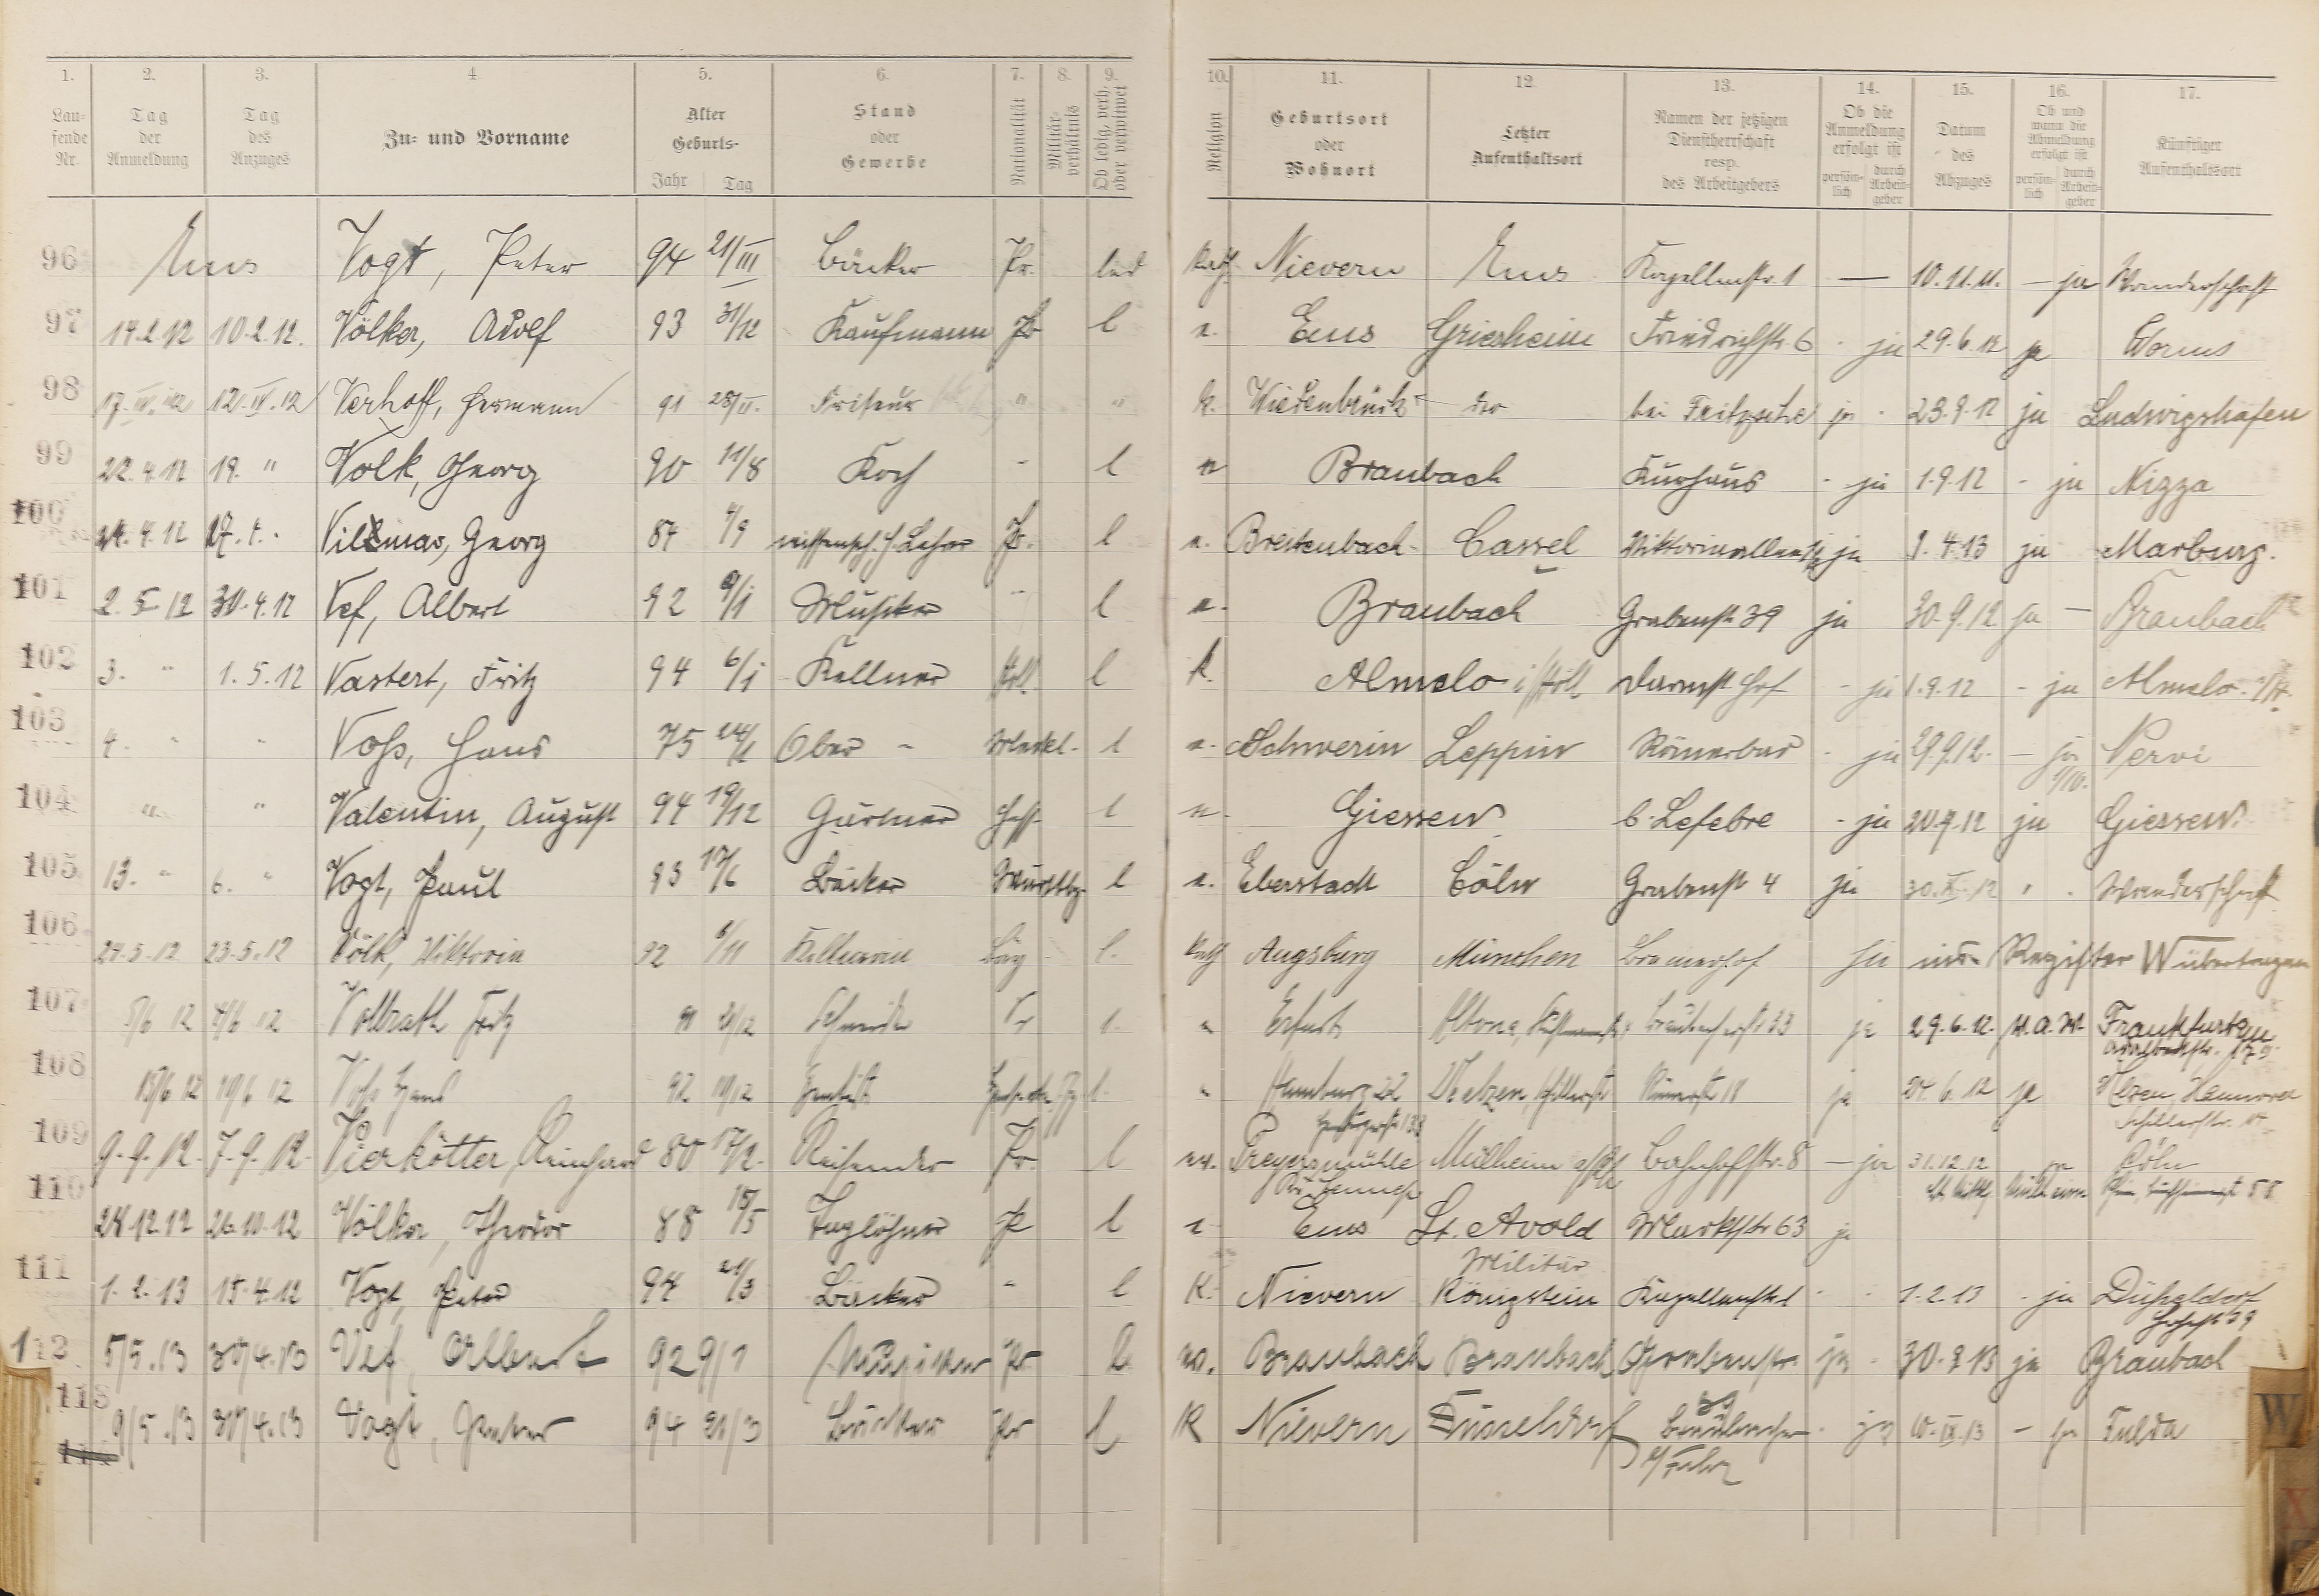 1. 2. 3. 4 5. 6. 7. 8. 9. 10. 11. 12. 13. 14. 15. 16. 17.
Laufende Nr.
Tag der Anmeldung
Tag des Anzuges
Zu- und Vorname
Alter Geburts- Jahr Tag
Stand oder Gewerbe
Nationalität
Militärverhältnis
Ob ledig, verh. oder verwitwet
Religion
Geburtsort oder Wohnort
Letzter Aufenthaltsort
Namen der jetzigen Dienstherrschaft resp. des Arbeitgebers
Ob die Anmeldung erfolgt ist persönlich durch Arbeitgeber
Datum des Abzuges
Ob und wann die Abmeldung erfolgt ist persönlich durch Arbeitgeber
Künftiger Aufenthaltsort
96 Ems Vogt, Peter 94 21/III Bäcker Pr. led Kath. Nievern Ems Kapellenstr. 1 — 10.11.11. — ja Wanderschaft
97 14.2.12 10.2.12. Völker, Adolf 93 31/12 Kaufmann Pr l e. Ems Griesheim Friedrichstr. 6 - ja 29.6.12 ja Worms
98 17.IV.12 12.IV.12 Verhoff, Hermann 91 28/II. Friseur " " k. Wiedenbrück do bei Fritzsche ja - 23.9.12 ja Ludwigshafen
99 22.4.12 19. " Volk, Georg 90 11/8 Koch - l Braubach Kurhaus - ja 1.9.12 - ja Nizza
100 24.4.12 17.4. Vilmar, Georg 84 4/9 wissensch. Lehrer Pr. l e. Breitenbach Cassel Viktoriaallee ja 1.4.13 ja Marburg.
101 2.5.12 30.4.12 Vef, Albert 92 9/1 Musiker " l e. Braubach Grabenstr. 39 ja 30.9.12 ja — Braubach
102 3. " 1.5.12 Vastert, Fritz 94 6/1 Kellner Holl. l k. Almelo i/Holl Darmst. Hof - ja 1.9.12 - ja Almelo
103 4. " " Voß, Hans 75 Ober " Meckl. l e. Schwerin Leppin Römerbad - ja 29.9.12. — ja 1/10. Nervi
104 " " Valentin, August 94 19/12 Gärtner Hess. l Giessen b. Lefebre - ja 20.9.12 ja Giessen.
105 13. " 6. " Vogt, Paul 93 17/6 Bäcker Württbg. l e. Eberstadt Cöln Grabenstr 4 ja 30.XI.12 " . Wanderschaft
106. 24.5.12 23.5.12 Völk, Viktoria 92 /11 Kellnerin Bay l. Kath Augsburg München Bremerhof ja ins Register W übertragen
107 5/6 12 4/6 12 Vollrath Fritz 91 /12 Schneider Pr l. " Erfurt Altona, Braubacherstr 23 ja 29.6.12. Frankfurt
108 15/6 12 10/6 12 Voß Hans 92 10/12 l. " Hamburg 22 Uelzen, Schillerstr Römerstr 18 ja 24.6.12 ja Uelzen, Hannover Schillerstr.
109 9.9.12. 7.9.12. Vierkötter, Reinhard 80 17/2. Reisender Pr. l ev. Preyersmühle Mülheim a/Rh Bahnhofstr. 8 — ja 31.12.12 Cöln
110 28.12.12 26.10.12 Völker, Theodor 88 15/5 Taglöhner Pr l e Ems St. Avold Militär Marktstr 63 ja
111 1.2.13 15.4.12 Vogt, Peter 94 21/3 Bäcker " l K. Nievern Königstein Kapellenstr. 1 - - 1.2.13 - ja Düsseldorf
112 5/5.13 30/4.13 Vef, Albert 92 9/1 Musiker Pr l ev. Braubach Braubach Grabenstr. 39 ja - 30.9.13 ja Braubach
113 9/5.13 30/4.13 Vogt, Peter 94 21/3 Bäcker Pr l K Nievern Düsseldorf Braubacher - ja 10.IX.13 - ja Fulda
W
X